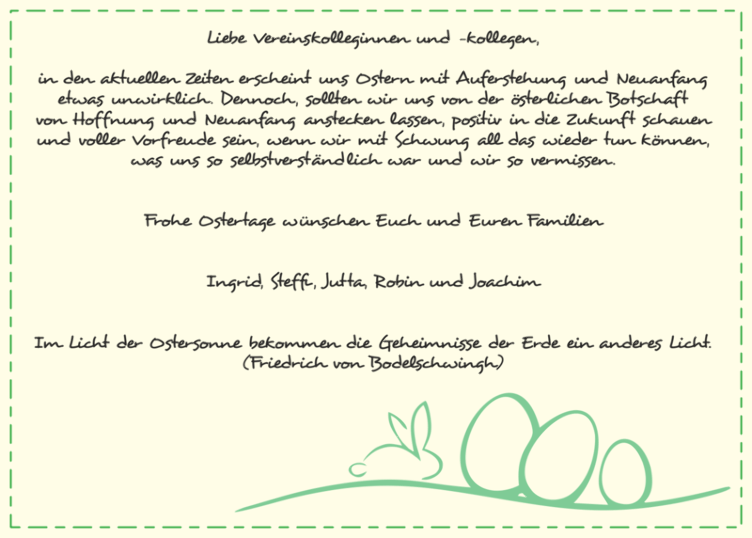 Liebe Vereinskolleginnen und -kollegen,
in den aktuellen Zeiten erscheint uns Ostern mit Auferstehung und Neuanfang
etwas unwirklich. Dennoch, sollten wir uns von der österlichen Botschaft
von Hoffnung und Neuanfang anstecken lassen, positiv in die Zukunft schauen
und voller Vorfreude sein, wenn wir mit Schwung all das wieder tun können,
was uns so selbstverständlich war und wir so vermissen.
Frohe Ostertage wünschen Euch und Euren Familien
Ingrid, Steffi, Jutta, Robin und Joachim
Im Licht der Ostersonne bekommen die Geheimnisse der Erde ein anderes Licht.
(Friedrich von Bodelschwingh)